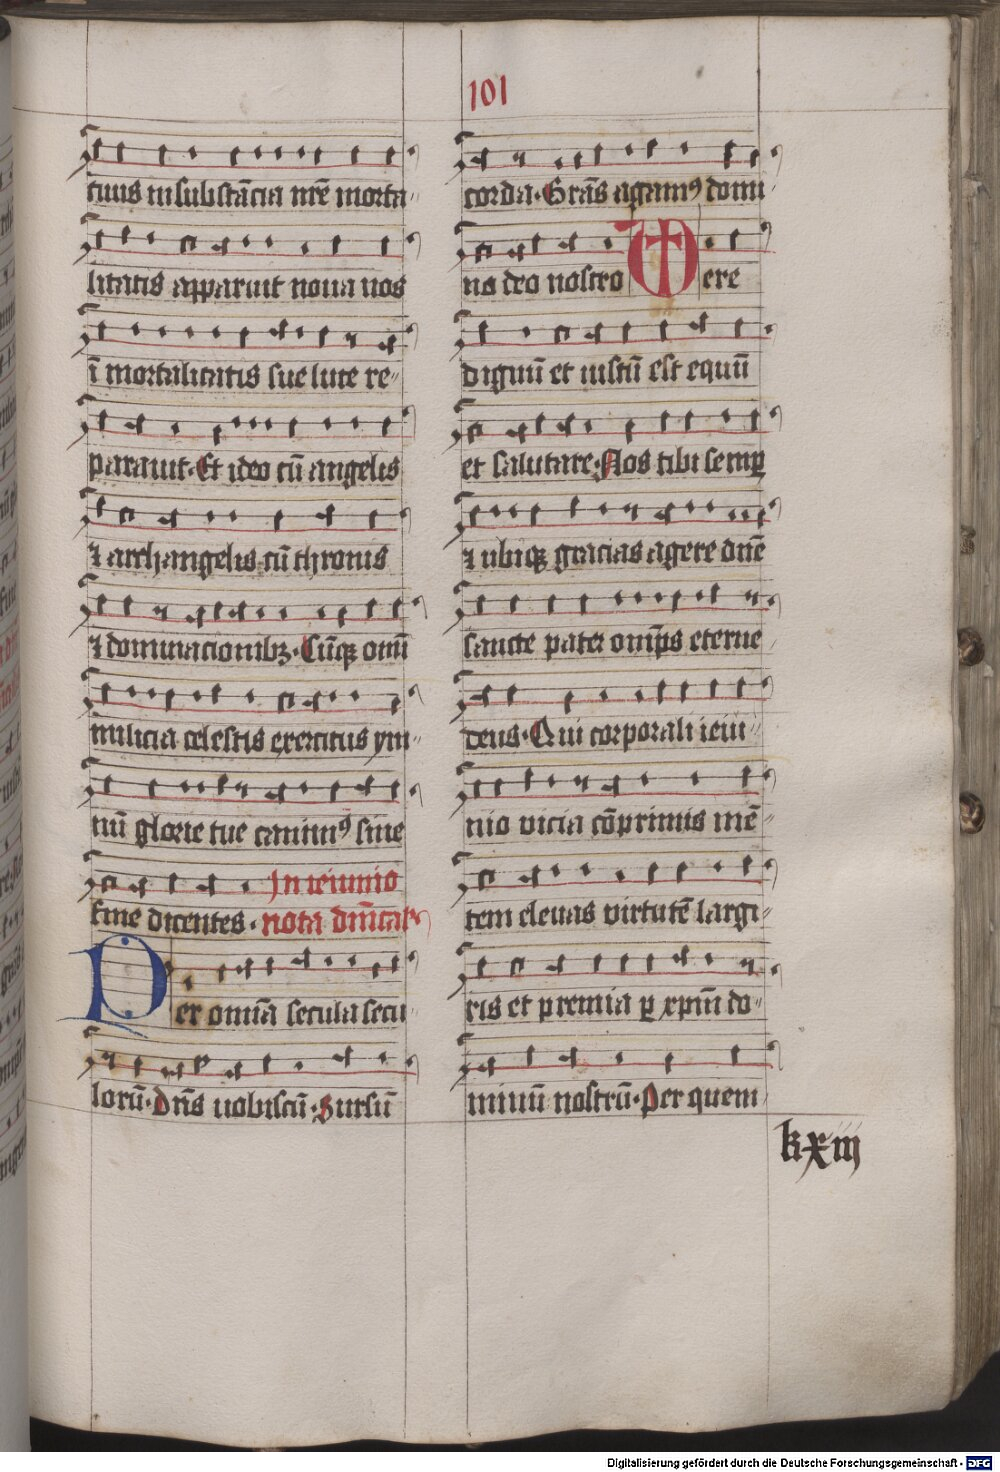 101
tuus in substācia nr̄e morta
litatis apparuit noua nos
ī mortalitatis sue luce re
parauit. Et ideo cū angelis
⁊ archangelis cū thronis
⁊ dominacionibꝫ. Cūqꝫ omī
milicia celestis exercitus ym
nū glorie tue canimꝰ sine
In ieiunio
fine dicentes. nota dn̄ical
Per omīa secula secu
lorū. Dn̄s uobiscū. Sursū
corda. Gr̄as agamꝰ domi
no deo nostro Uere
dignū et iustū est equū
et salutare. Nos tibi semꝑ
⁊ ubiqꝫ gracias agere dn̄e
sancte pater omp̄s eterne
deus. Qui corporali ieiu
nio vicia cōprimis mē
tem eleuas virtutē largi
ris et premia ꝑ xp̄m do
minū nostrū. Per quem
lxiij
Digitalisierung gefördert durch die Deutsche Forschungsgemeinschaft - DFG